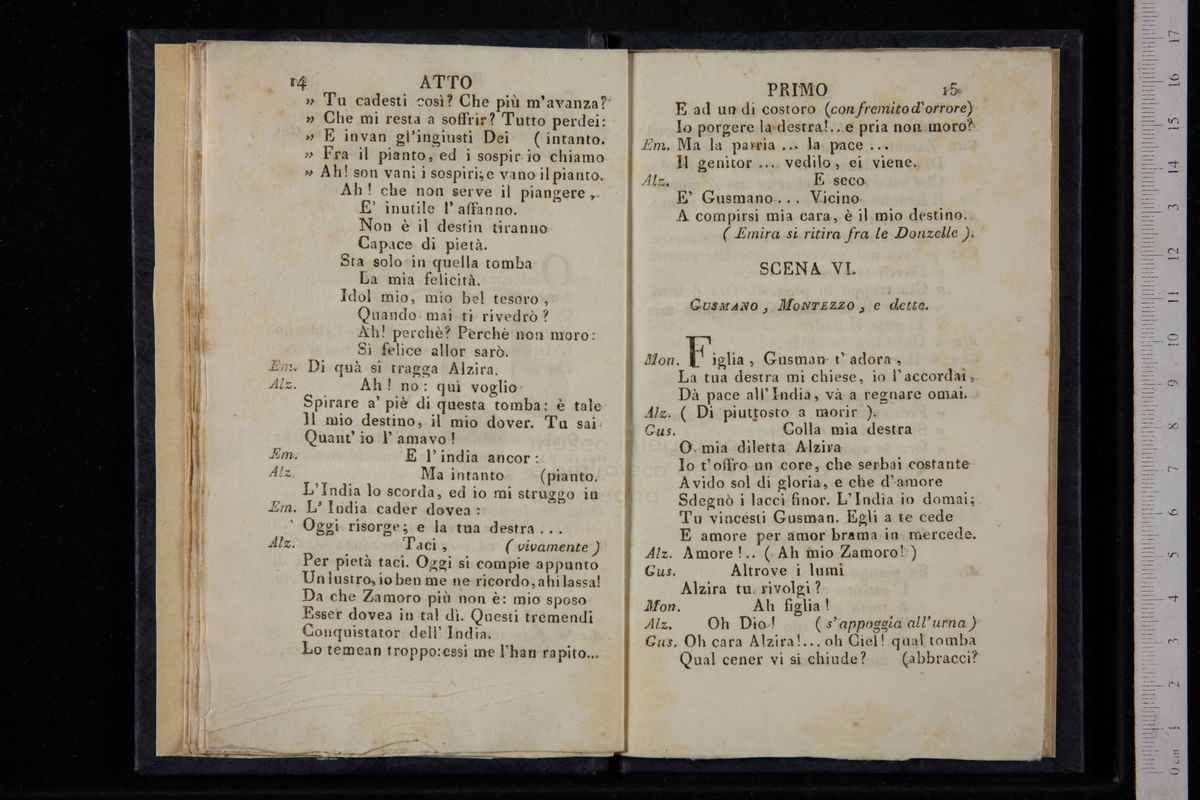 14 ATTO
» Tu cadesti così? Che più m'avanza?
» Che mi resta a soffrir? Tutto perdei:
» E invan gl'ingiusti Dei ( intanto.
» Fra il pianto, ed i sospir io chiamo
» Ah! son vani i sospiri; e vano il pianto.
Ah! che non serve il piangere,
E' inutile l'affanno.
Non è il destin tiranno
Capace di pietà.
Sta solo in quella tomba
La mia felicità.
Idol mio, mio bel tesoro,
Quando mai ti rivedrò?
Ah! perchè? Perchè non moro:
Sì felice allor sarò.
Em. Di quà si tragga Alzira.
Alz. Ah! no: quì voglio
Spirare a' piè di questa tomba: è tale
Il mio destino, il mio dover. Tu sai
Quant' io l'amavo!
Em. E l'india ancor:
Alz. Ma intanto (pianto.
L'India lo scorda, ed io mi struggo in
Em. L' India cader dovea:
Oggi risorge; e la tua destra...
Alz. Taci, ( vivamente )
Per pietà taci. Oggi si compie appunto
Un lustro, io ben me ne ricordo, ahi lassa!
Da che Zamoro più non è: mio sposo
Esser dovea in tal dì. Questi tremendi
Conquistator dell' India.
Lo temean troppo: essi me l'han rapito...
PRIMO 15
E ad un di costoro (con fremito d'orrore)
Io porgere la destra!.. e pria non moro?
Em. Ma la patria ... la pace ...
Il genitor ... vedilo, ei viene.
Alz. E seco
E' Gusmano... Vicino
A compirsi mia cara, è il mio destino.
( Emira si ritira fra le Donzelle ).
SCENA VI.
GUSMANO, MONTEZZO, e dette.
Mon. Figlia, Gusman t'adora,
La tua destra mi chiese, io l'accordai,
Dà pace all'India, và a regnare omai.
Alz. ( Di piuttosto a morir ).
Gus. Colla mia destra
O mia diletta Alzira
Io t'offro un core, che serbai costante
Avido sol di gloria, e che d'amore
Sdegnò i lacci finor. L'India io domai;
Tu vincesti Gusman. Egli a te cede
E amore per amor brama in mercede.
Alz. Amore!.. ( Ah mio Zamoro! )
Gus. Altrove i lumi
Alzira tu rivolgi?
Mon. Ah figlia!
Alz. Oh Dio! ( s'appoggia all'urna )
Gus. Oh cara Alzira!... oh Ciel! qual tomba
Qual cener vi si chiude? (abbracci?